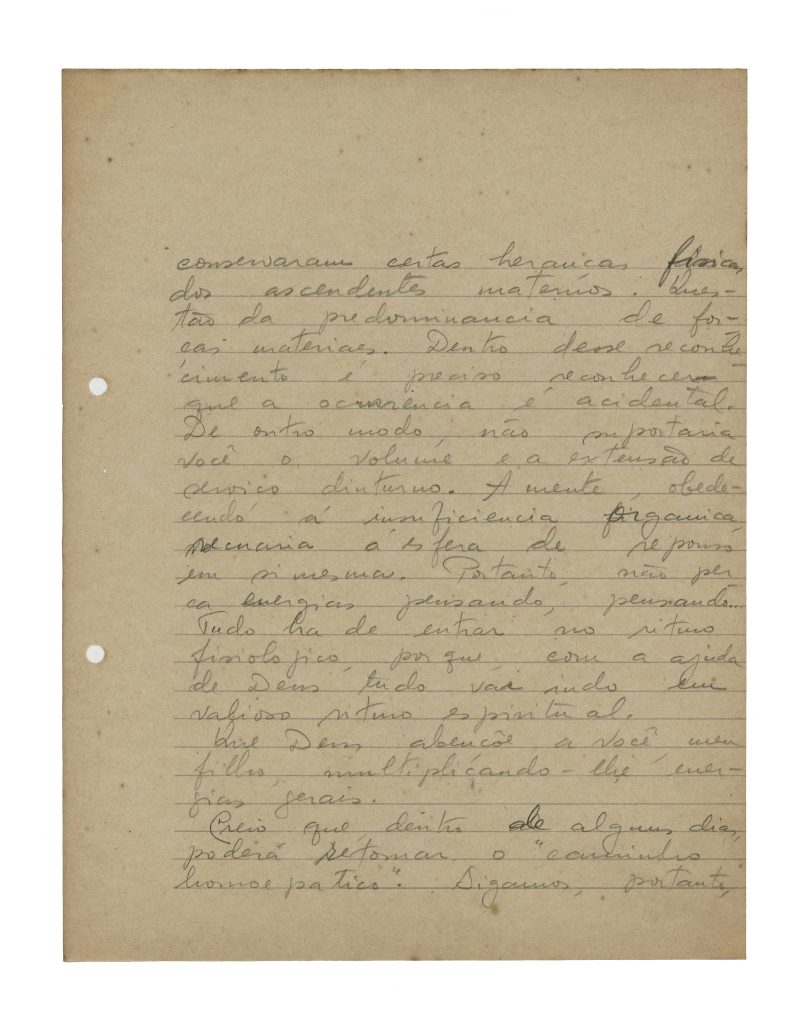 conservaram certas heranças físicas
dos ascendentes maternos. Ques-
tão da predominancia de for-
ças materiaes. Dentro desse reconhe-
cimento é preciso reconhecer
que a ocurrencia é acidental.
De outro modo, não suportaria
você o volume e a extensão de
serviço diuturno. A mente, obede-
cendo á insuficiencia organica,
á esfera de repouso
em si mesma. Portanto, não per-
ca energias pensando, pensando...
Tudo ha de entrar no ritmo
fisiologico, porque, com a ajuda
de Deus, tudo vai indo em
valioso ritmo espiritual.
Que Deus abençôe a você, meu
filho, multiplicando-lhe ener-
gias gerais.
Creio que, dentro de alguns dias,
poderá retomar o "caminho
homoepatico". Digamos, portanto,